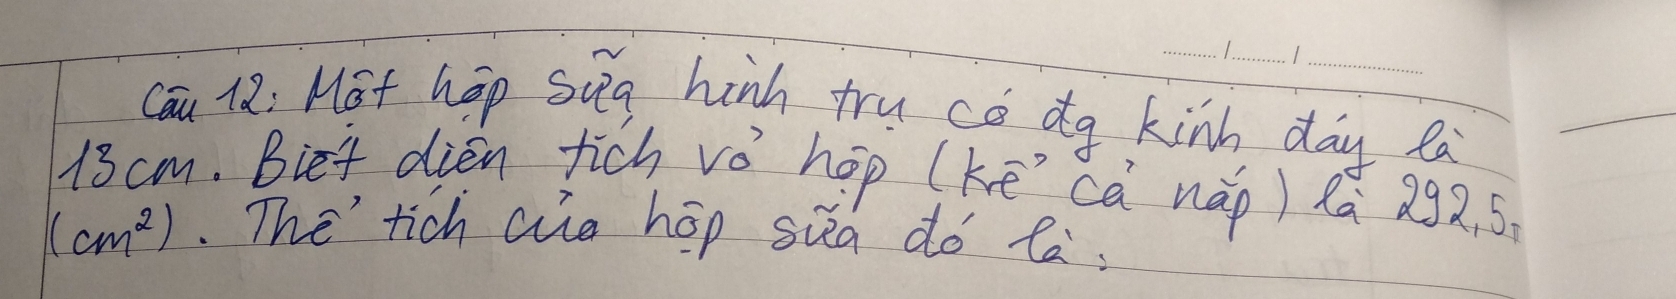 Câu 12: Một hộp sữa hình trụ có đg kính đáy là
13cm. Biết diện tích vỏ hộp (kể cả nắp) là 292,5π
(cm²). Thể tích của hộp sữa đó là: